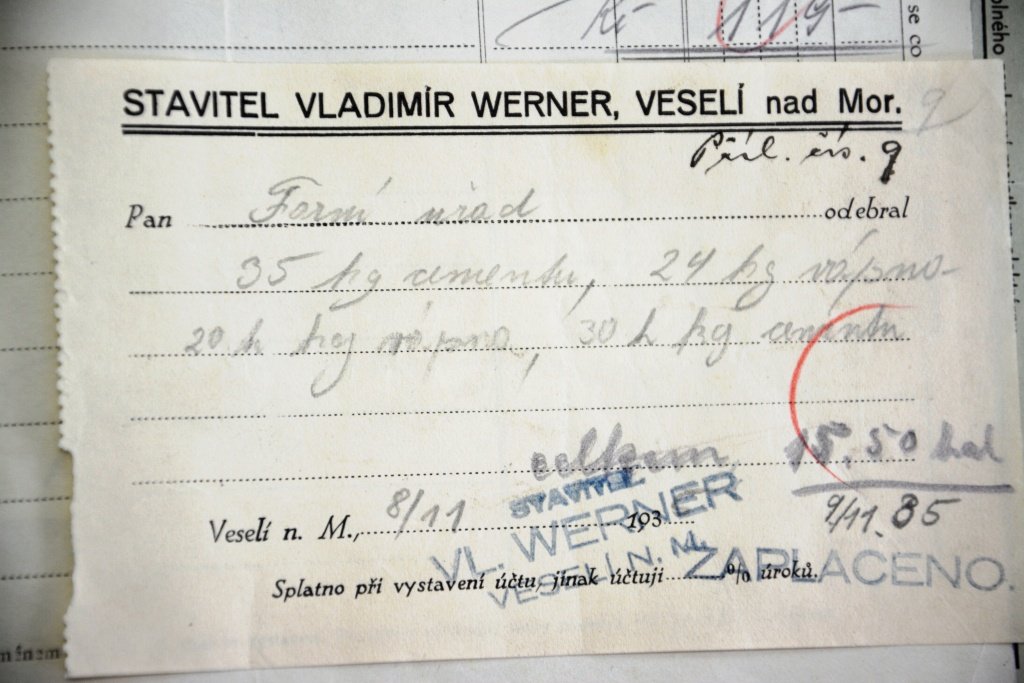 Kč 119-
se co
plného
STAVITEL VLADIMÍR WERNER, VESELÍ nad Mor.
9
Příl. čís. 9
Pan úřad odebral
35 kg cementu, 24 kg vápno-
20 h kg vápna, 30 h kg cementu
celkem 15.50 hal
STAVITEL
Veselí n. M., 8/11 193
9/11. 35
VL. WERNER
VESELÍ N. M.
ZAPLACENO.
Splatno při vystavení účtu, jinak účtuji % úroků.